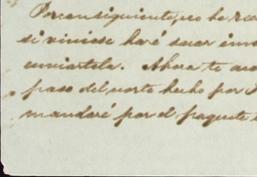 Por consiguiente, no he rec
si viniese haré sacar inme
enviártela. Ahora te av
paso del porte hecho por
mandaré por el paquete